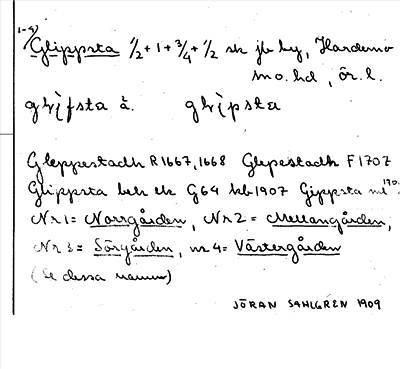 1-4)
Glippsta 1/2 + 1 + 3/4 + 1/2 sk jb by, Hardemo
sn o. hd, ör. l.
glifsta å. glipsta
Gleppestadh R 1667, 1668 Glepestadh F 1707
Glippsta beb ek G64 hbl 1907 Gippsta
Nr 1 = Norrgården, Nr 2 = Mellangården,
Nr 3 = Sörgården, nr 4 = Västergården
(Se dessa namn)
JÖRAN SAHLGREN 1909